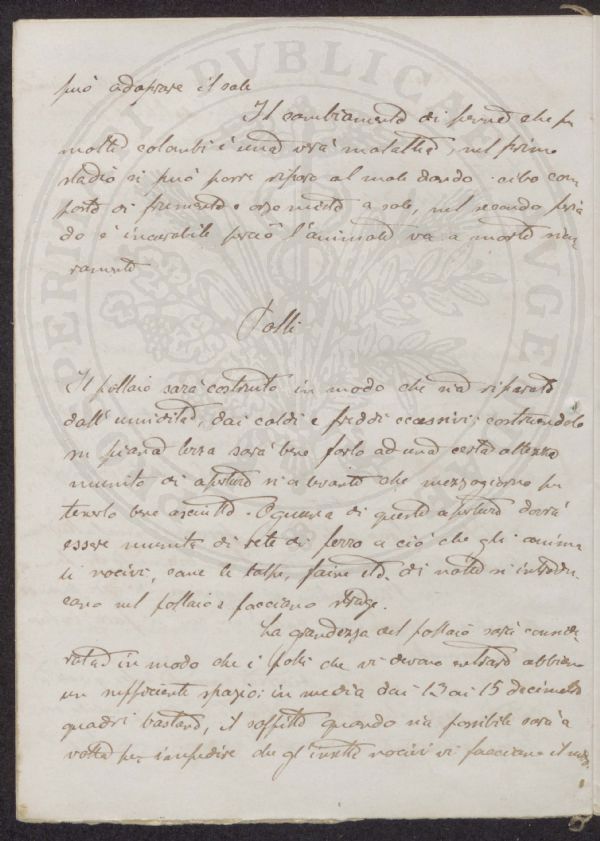 può adoprare il sale
Il cambiamento di penne che fa
molte colombi è una vera malattia, nel primo
stadio si può porre riparo al male dando cibo com
posto di frumento e orzo misto a sale, nel secondo perio
do è incurabile perciò l'animale va a morte sicu
ramente
Polli
Il pollaio sarà costruito in modo che sia riparato
dall'umidità, dai caldi e freddi eccessivi; costruendolo
su piana terra sarà bene farlo ad una certa altezza
munito di apertura sia a levante che mezzogiorno per
tenerlo bene asciutto. Ognuna di queste aperture dovrà
essere munita di rete di ferro a ciò che gli anima
li nocivi, come le talpe, faine etc. di notte si introdu
cano nel pollaio e facciano strage.
La grandezza del pollaio sarà conside
rata in modo che i polli che vi devono entrare abbiano
un sufficiente spazio; in media dai 13 ai 15 decimetri
quadri bastano, il soffitto quando sia possibile sarà a
volta per impedire che gl'insetti nocivi vi facciano il